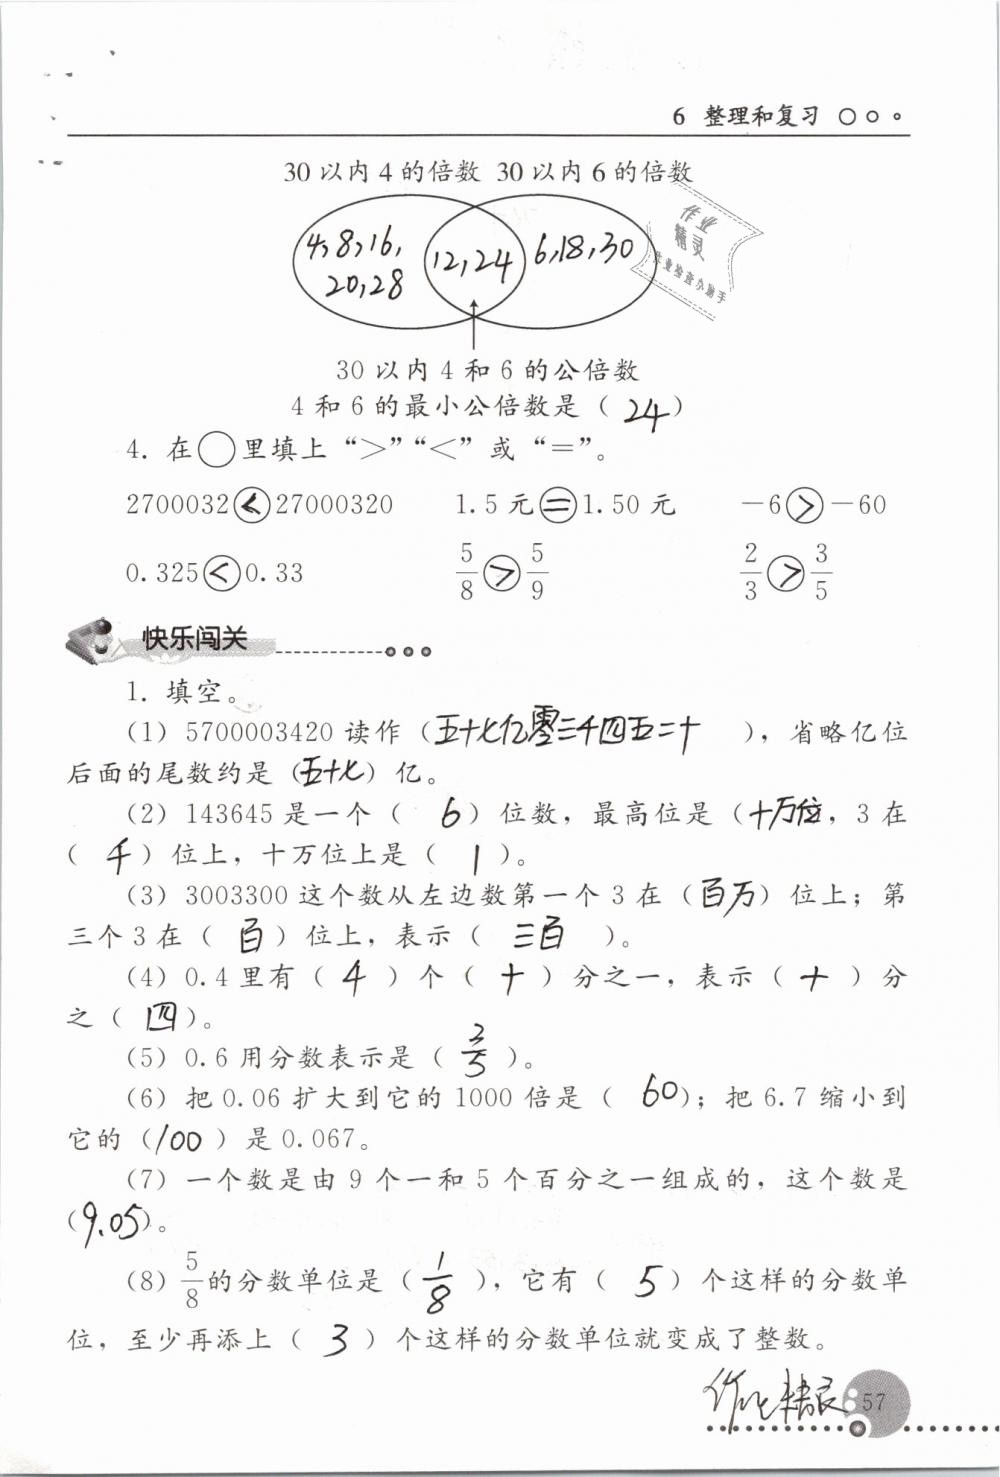 6 整理和复习
30 以内 4 的倍数 30 以内 6 的倍数
作业
精灵
作业检查小助手
4,8,16, 12,24 6,18,30
20,28
30 以内 4 和 6 的公倍数
4 和 6 的最小公倍数是（ 24 ）
4. 在○里填上“>”“<”或“=”。
2700032 < 27000320 1.5 元 = 1.50 元 -6 > -60
0.325 < 0.33 5/8 > 5/9 2/3 > 3/5
快乐闯关
1. 填空。
(1) 5700003420 读作（五十七亿零三千四五二十 ），省略亿位
后面的尾数约是（五十七）亿。
(2) 143645 是一个（ 6 ）位数，最高位是（十万位，3 在
（ 千 ）位上，十万位上是（ 1 ）。
(3) 3003300 这个数从左边数第一个 3 在（百万）位上；第
三个 3 在（ 百 ）位上，表示（ 三百 ）。
(4) 0.4 里有（ 4 ）个（ 十 ）分之一，表示（ 十 ）分
之（ 四 ）。
(5) 0.6 用分数表示是（ 3/5 ）。
(6) 把 0.06 扩大到它的 1000 倍是（ 60 ）；把 6.7 缩小到
它的（/100 ）是 0.067。
(7) 一个数是由 9 个一和 5 个百分之一组成的，这个数是
（9.05）。
(8) 5/8 的分数单位是（ 1/8 ），它有（ 5 ）个这样的分数单
位，至少再添上（ 3 ）个这样的分数单位就变成了整数。
作业精灵
57